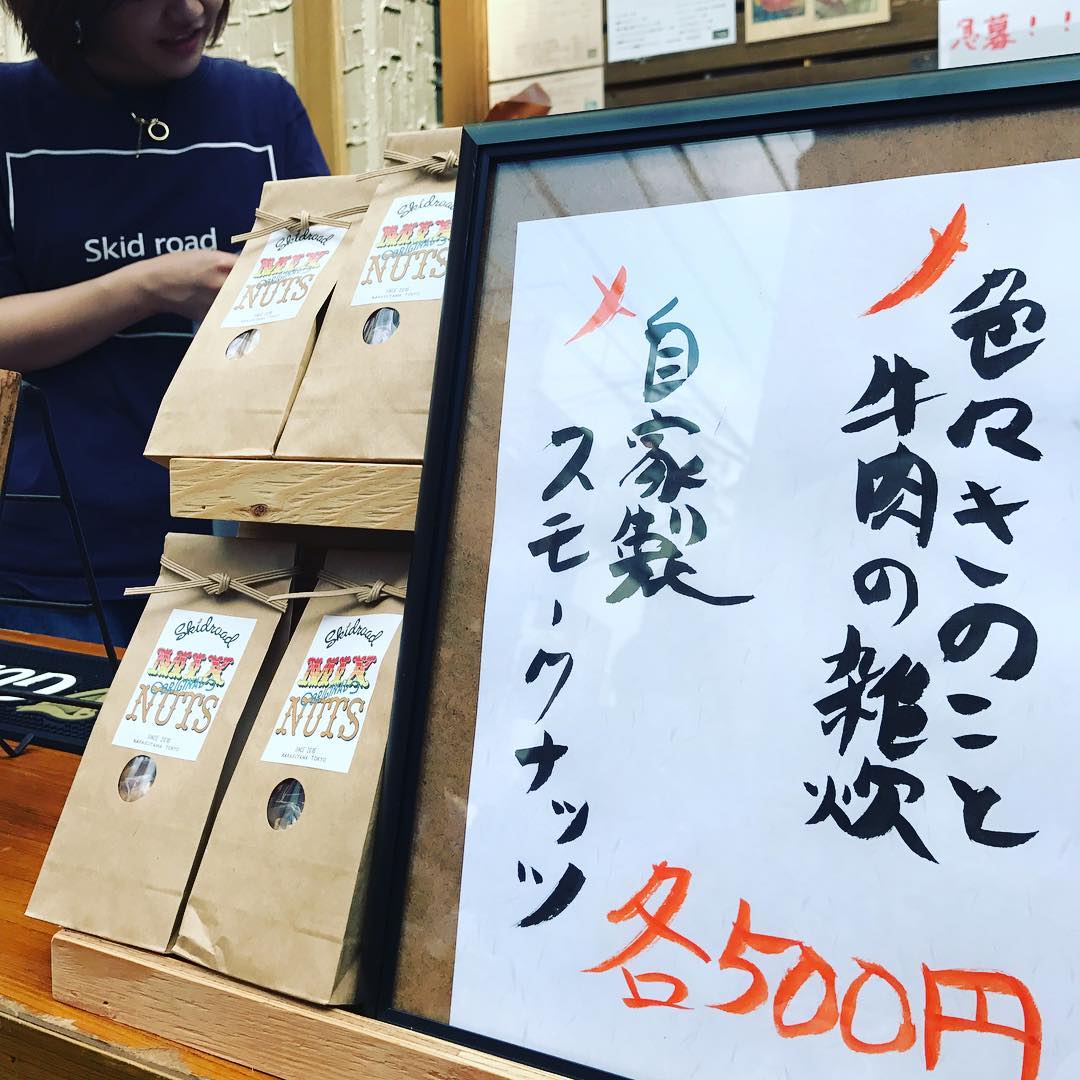 急募!!
色々きのこと
牛肉の雑炊
自家製
スモークナッツ
各500円
Skid road
Skidroad
MIX
ORIGINAL
NUTS
Skidroad
MIX
ORIGINAL
NUTS
Skidroad
MIX
ORIGINAL
NUTS
SINCE 2016
NAKAGITAMA TOKYO
Skidroad
MIX
ORIGINAL
NUTS
SINCE 2016